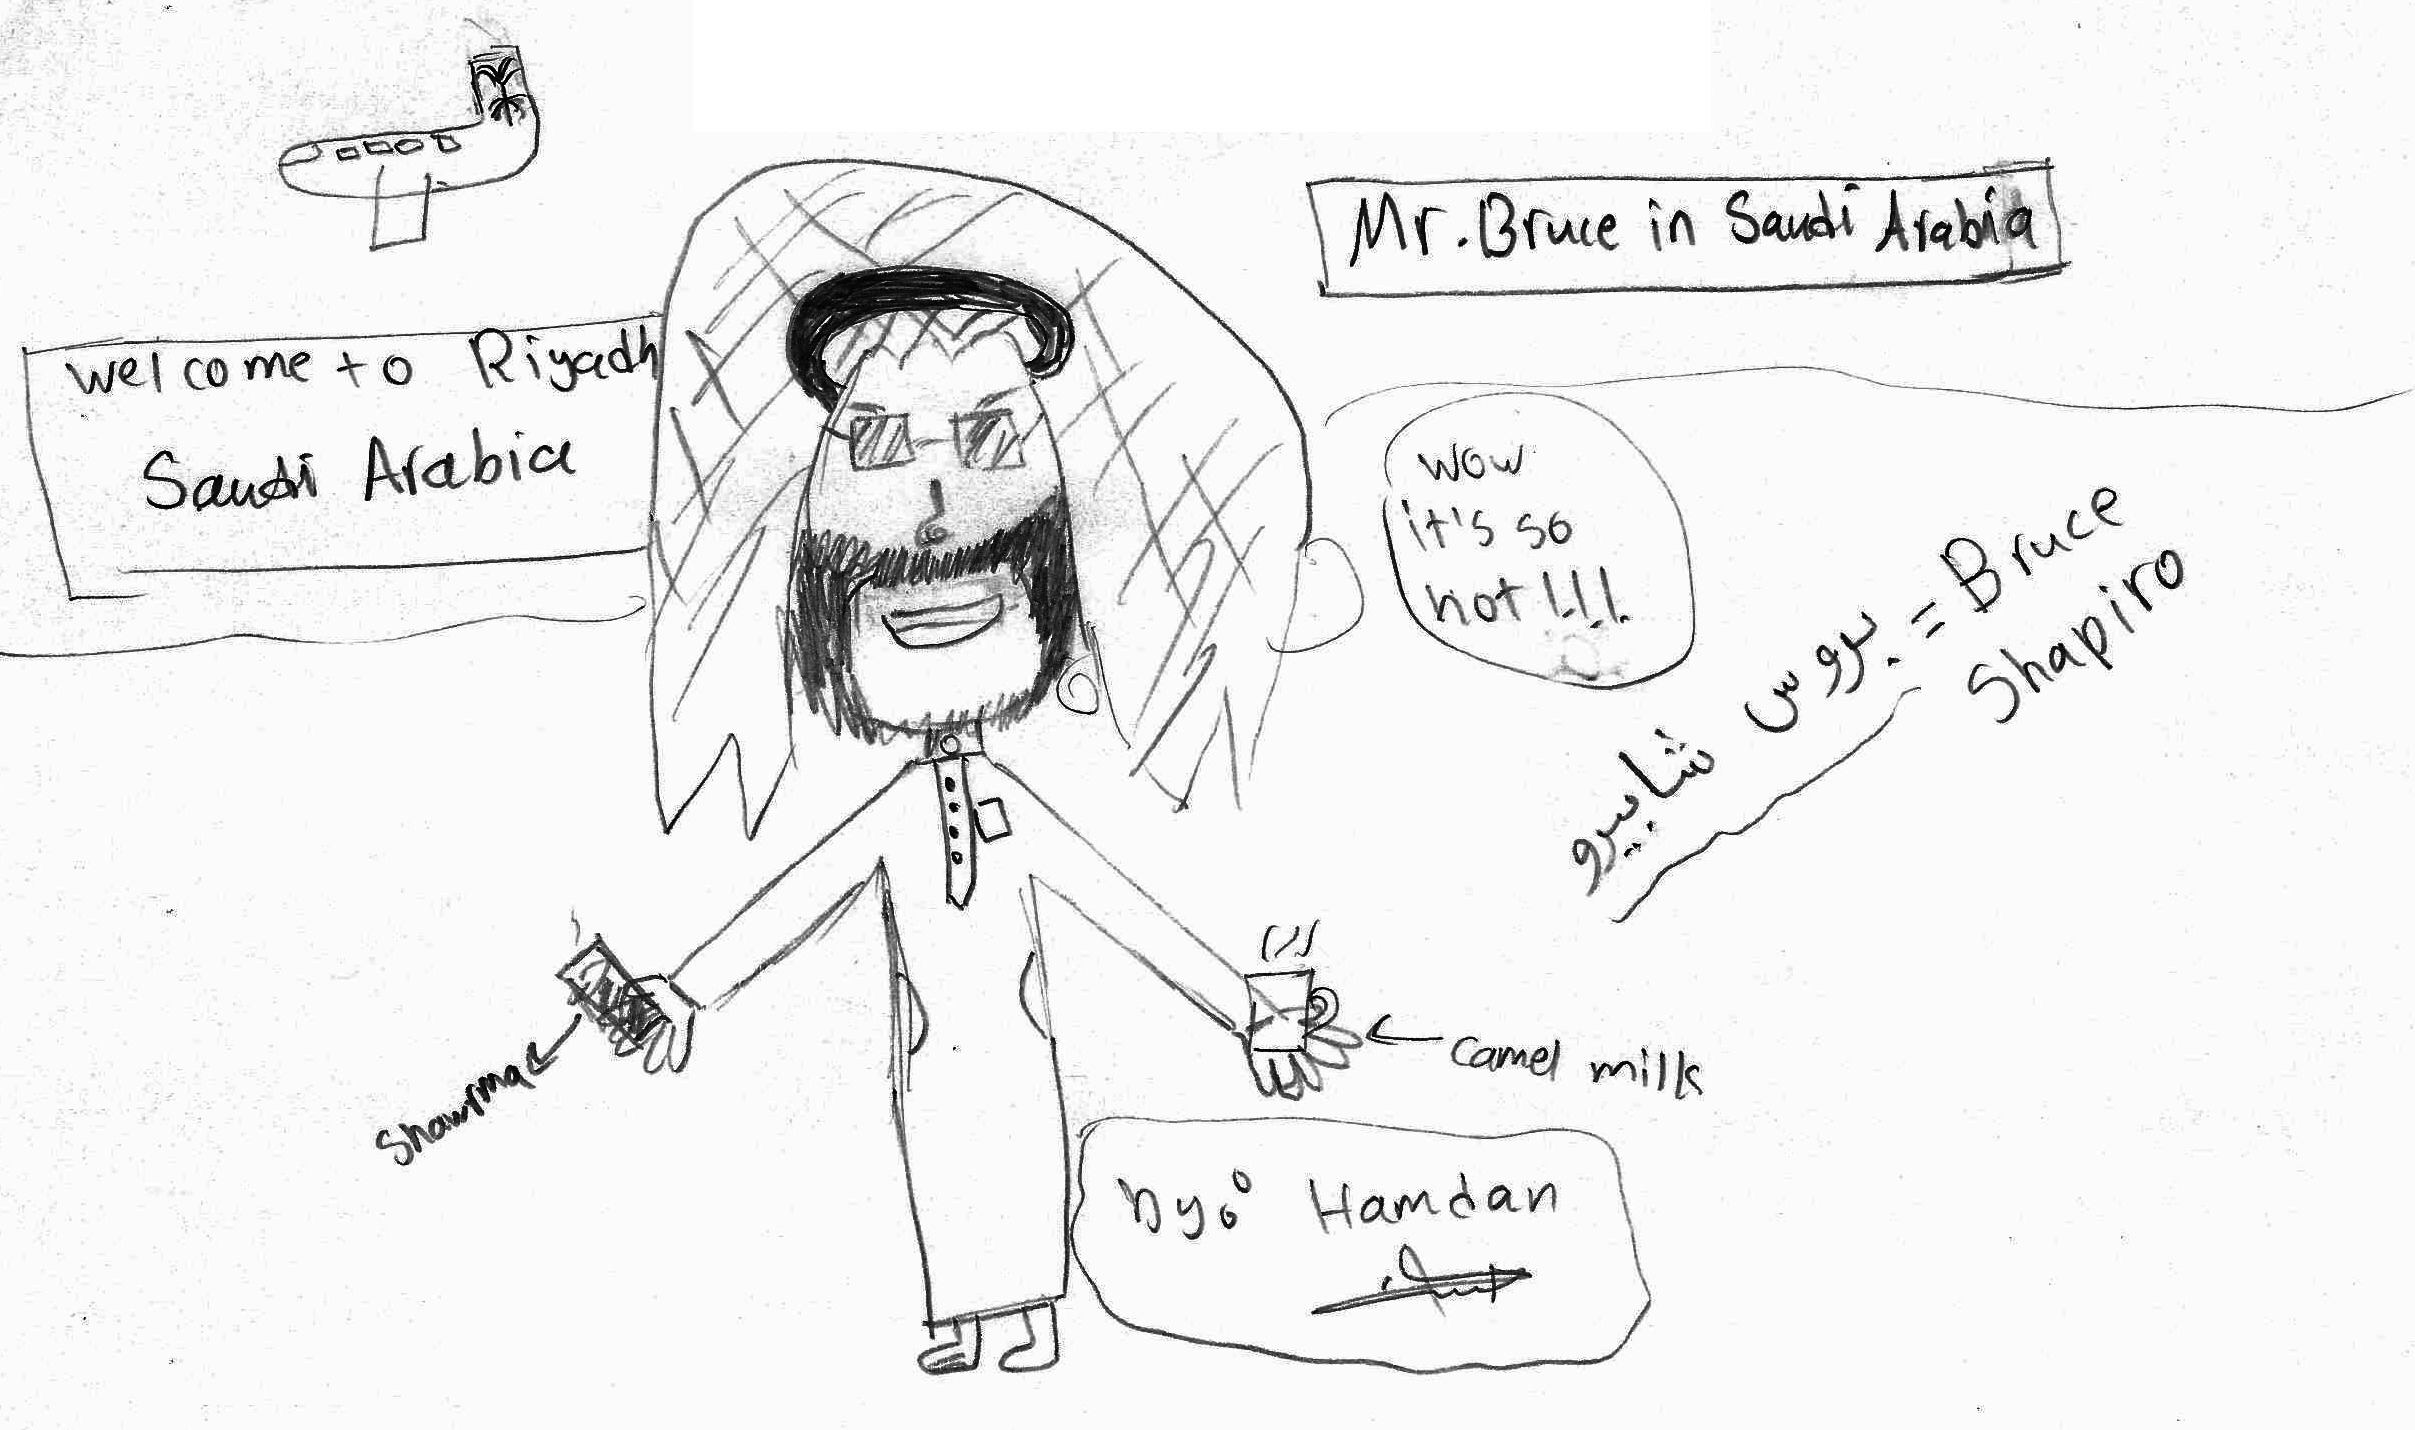 Mr. Bruce in Saudi Arabia
Welcome to Riyadh
Saudi Arabia
wow
it's so
hot !!!
بروس شابيرو = Bruce
Shapiro
Shawrma
Camel milk
by: Hamdan